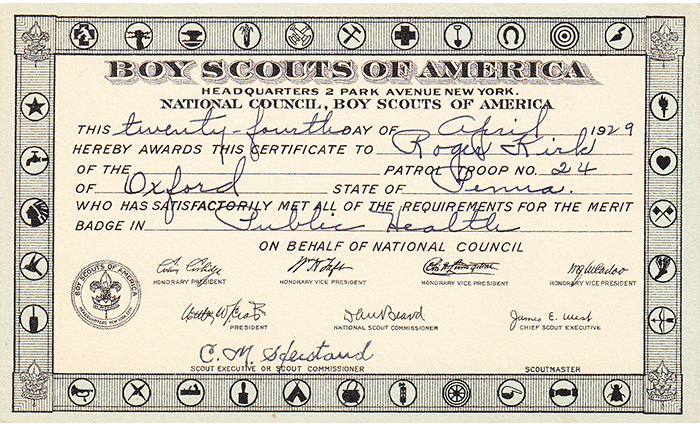 BOY SCOUTS OF AMERICA
HEADQUARTERS 2 PARK AVENUE NEW YORK.
NATIONAL COUNCIL, BOY SCOUTS OF AMERICA
THIS twenty-fourth DAY OF April 1929
HEREBY AWARDS THIS CERTIFICATE TO Roger Kirk
OF THE PATROL TROOP NO. 24
OF Oxford STATE OF Penna.
WHO HAS SATISFACTORILY MET ALL OF THE REQUIREMENTS FOR THE MERIT
BADGE IN Public Health
ON BEHALF OF NATIONAL COUNCIL
BOY SCOUTS OF AMERICA
Calvin Coolidge Wm H Taft W G McAdoo
HONORARY PRESIDENT HONORARY VICE PRESIDENT HONORARY VICE PRESIDENT HONORARY VICE PRESIDENT
Dan Beard James E. West
PRESIDENT NATIONAL SCOUT COMMISSIONER CHIEF SCOUT EXECUTIVE
C. M. Heistand
SCOUT EXECUTIVE OR SCOUT COMMISSIONER SCOUTMASTER